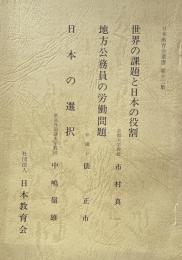 日本教育会叢書 第十二集
世界の課題と日本の役割
京都大学教授 市村真一
地方公務員の労働問題
弁護士 俵正市
日本の選択
東京外国語大学教授 中嶋嶺雄
社団法人 日本教育会